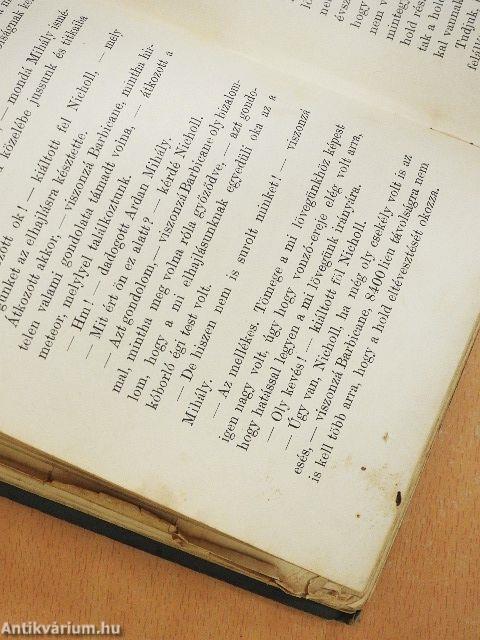 — monda Mihály ismé-
közelébe jussunk és titkaiba
ok! — kiáltott fel Nicholl, — mely
günket az elhajlásra késztette.
Átkozott akkor, — viszonzá Barbicane, mintha hir-
telen valami gondolata támadt volna, — átkozott a
meteor, melylyel találkoztunk.
— Hm! — dadogott Ardan Mihály.
— Mit ért ön ez alatt? — kérdé Nicholl.
— Azt gondolom, — viszonzá Barbicane oly bizalom-
mal, mintha meg volna róla győződve, — azt gondo-
lom, hogy a mi elhajlásunknak egyedüli oka az a
kóborló égi test volt.
— De hiszen nem is surolt minket! — viszonzá
Mihály.
— Az mellékes. Tömege a mi lövegünkhöz képest
igen nagy volt, úgy hogy vonzó-ereje elég volt arra,
hogy hatással legyen a mi lövegünk irányára.
— Oly kevés! — kiáltott föl Nicholl.
— Úgy van, Nicholl, ha még oly csekély volt is az
esés, — viszonzá Barbicane, 8400 lieu távolságra nem
is kell több arra, hogy a hold eltévesztését okozza.
évsz
hogy
nem v
mintegy
hold rész
tak a hold
kal vannak
Tudjuk
felál
Antikvárium.hu